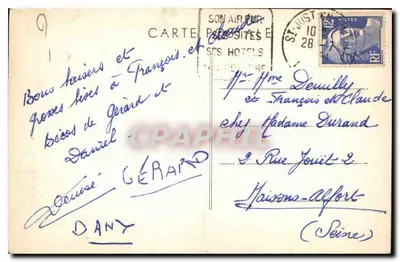 SON AIR PUR
SES SITES
SES HOTELS
CARTE POSTALE
ST JUST EN
10
28
RF
Bons baisers et
grosses bises à François et Claude
bécos de Gérard et
Daniel
Denise
GÉRARD
DANY
Mr Mme Deuilly
et François et Claude
chez Madame Durand
2 Rue Jouët 2
Maisons-Alfort
(Seine)